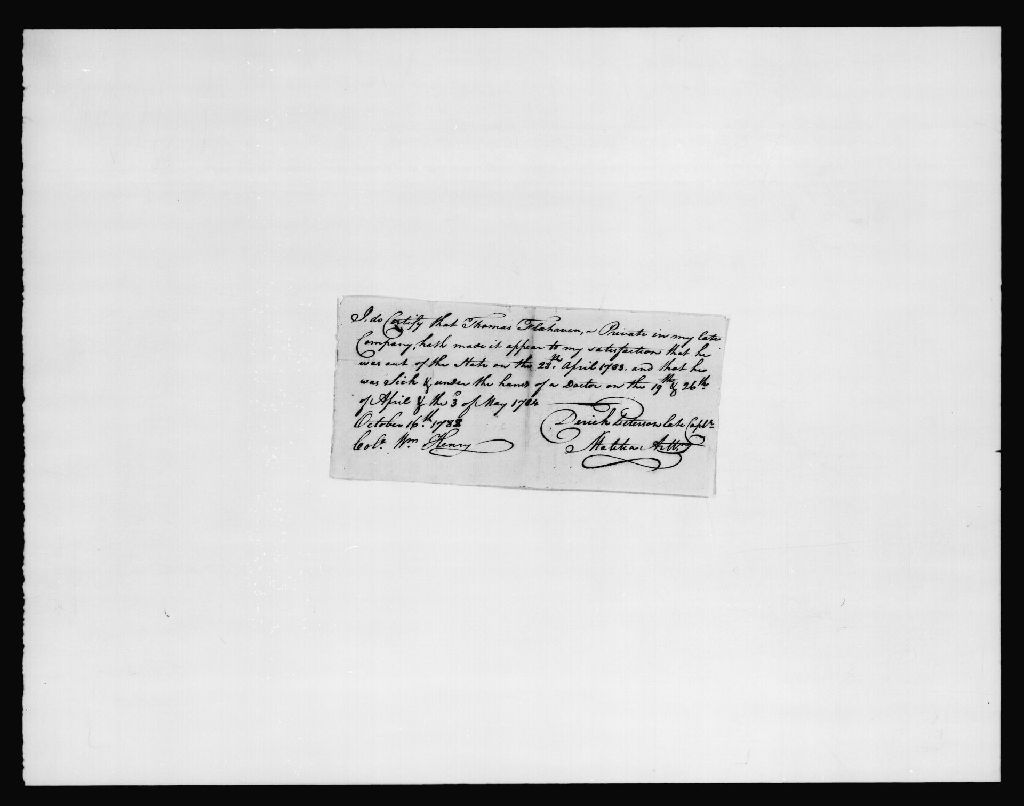 I do Certify that Thomas Flahaven, a Private in my late
Company, hath made it appear to my satisfaction that he
was out of the State on the 28th April 1783. and that he
was Sick & under the hands of a Doctor on the 19th & 26th
of April & the 3d of May 1784
October 16th 1788
Derick Peterson late Captn
Colo. Wm Henry
Militia Arttr